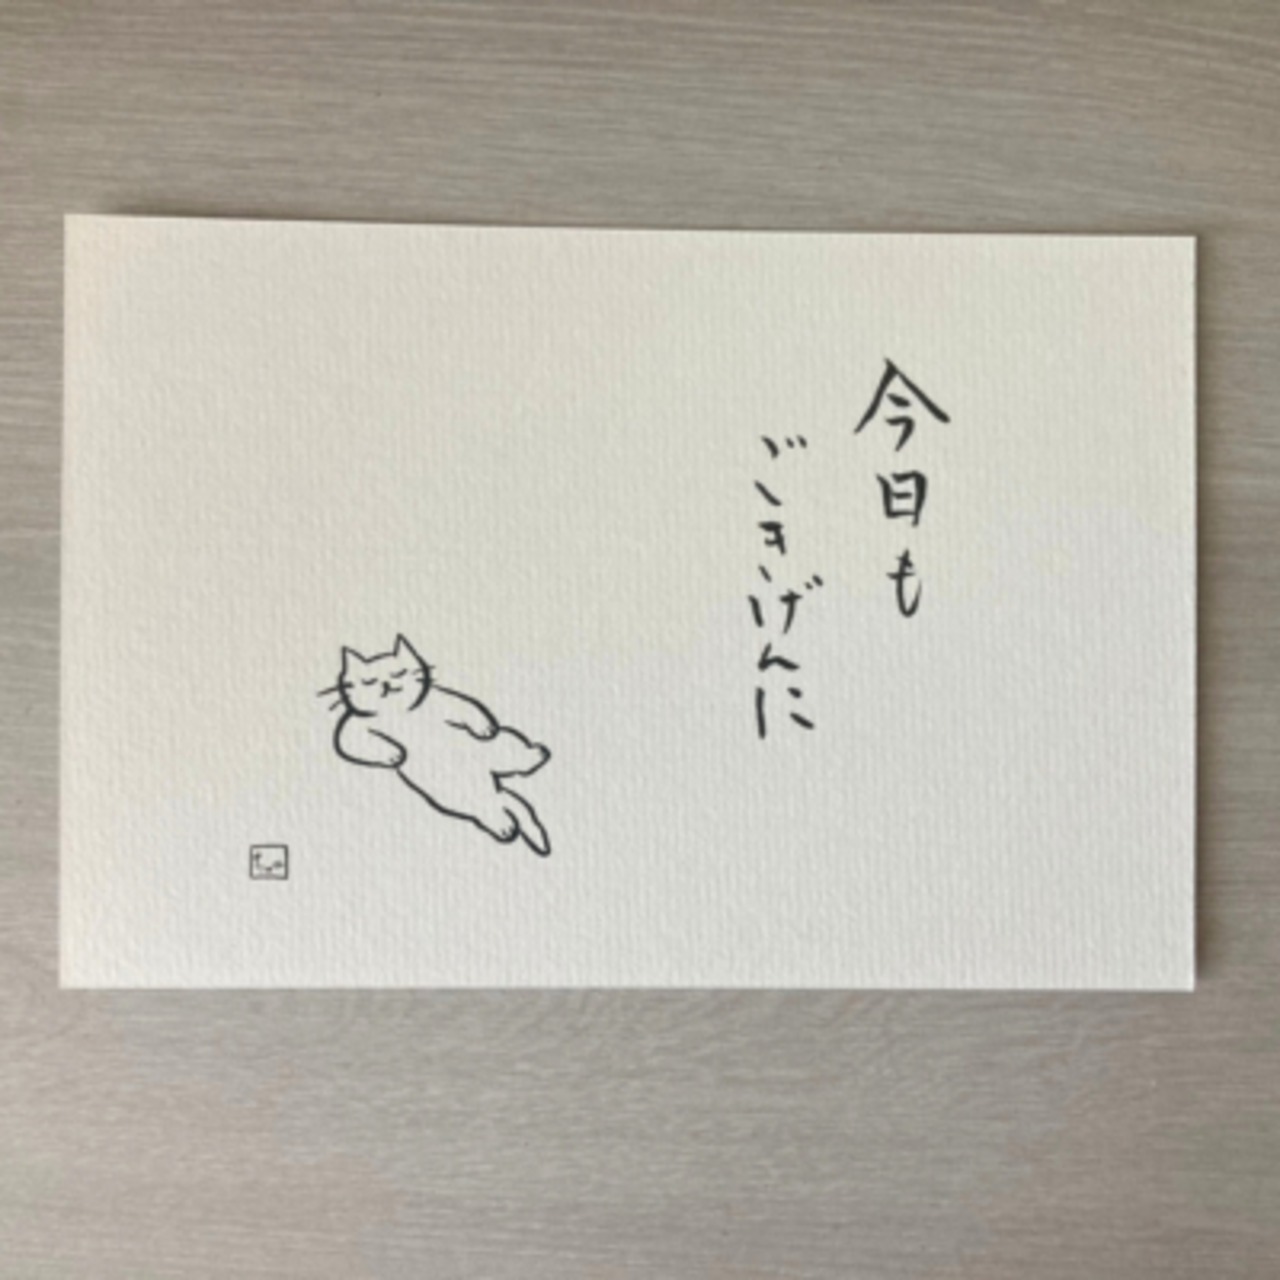 今日も
ごきげんに